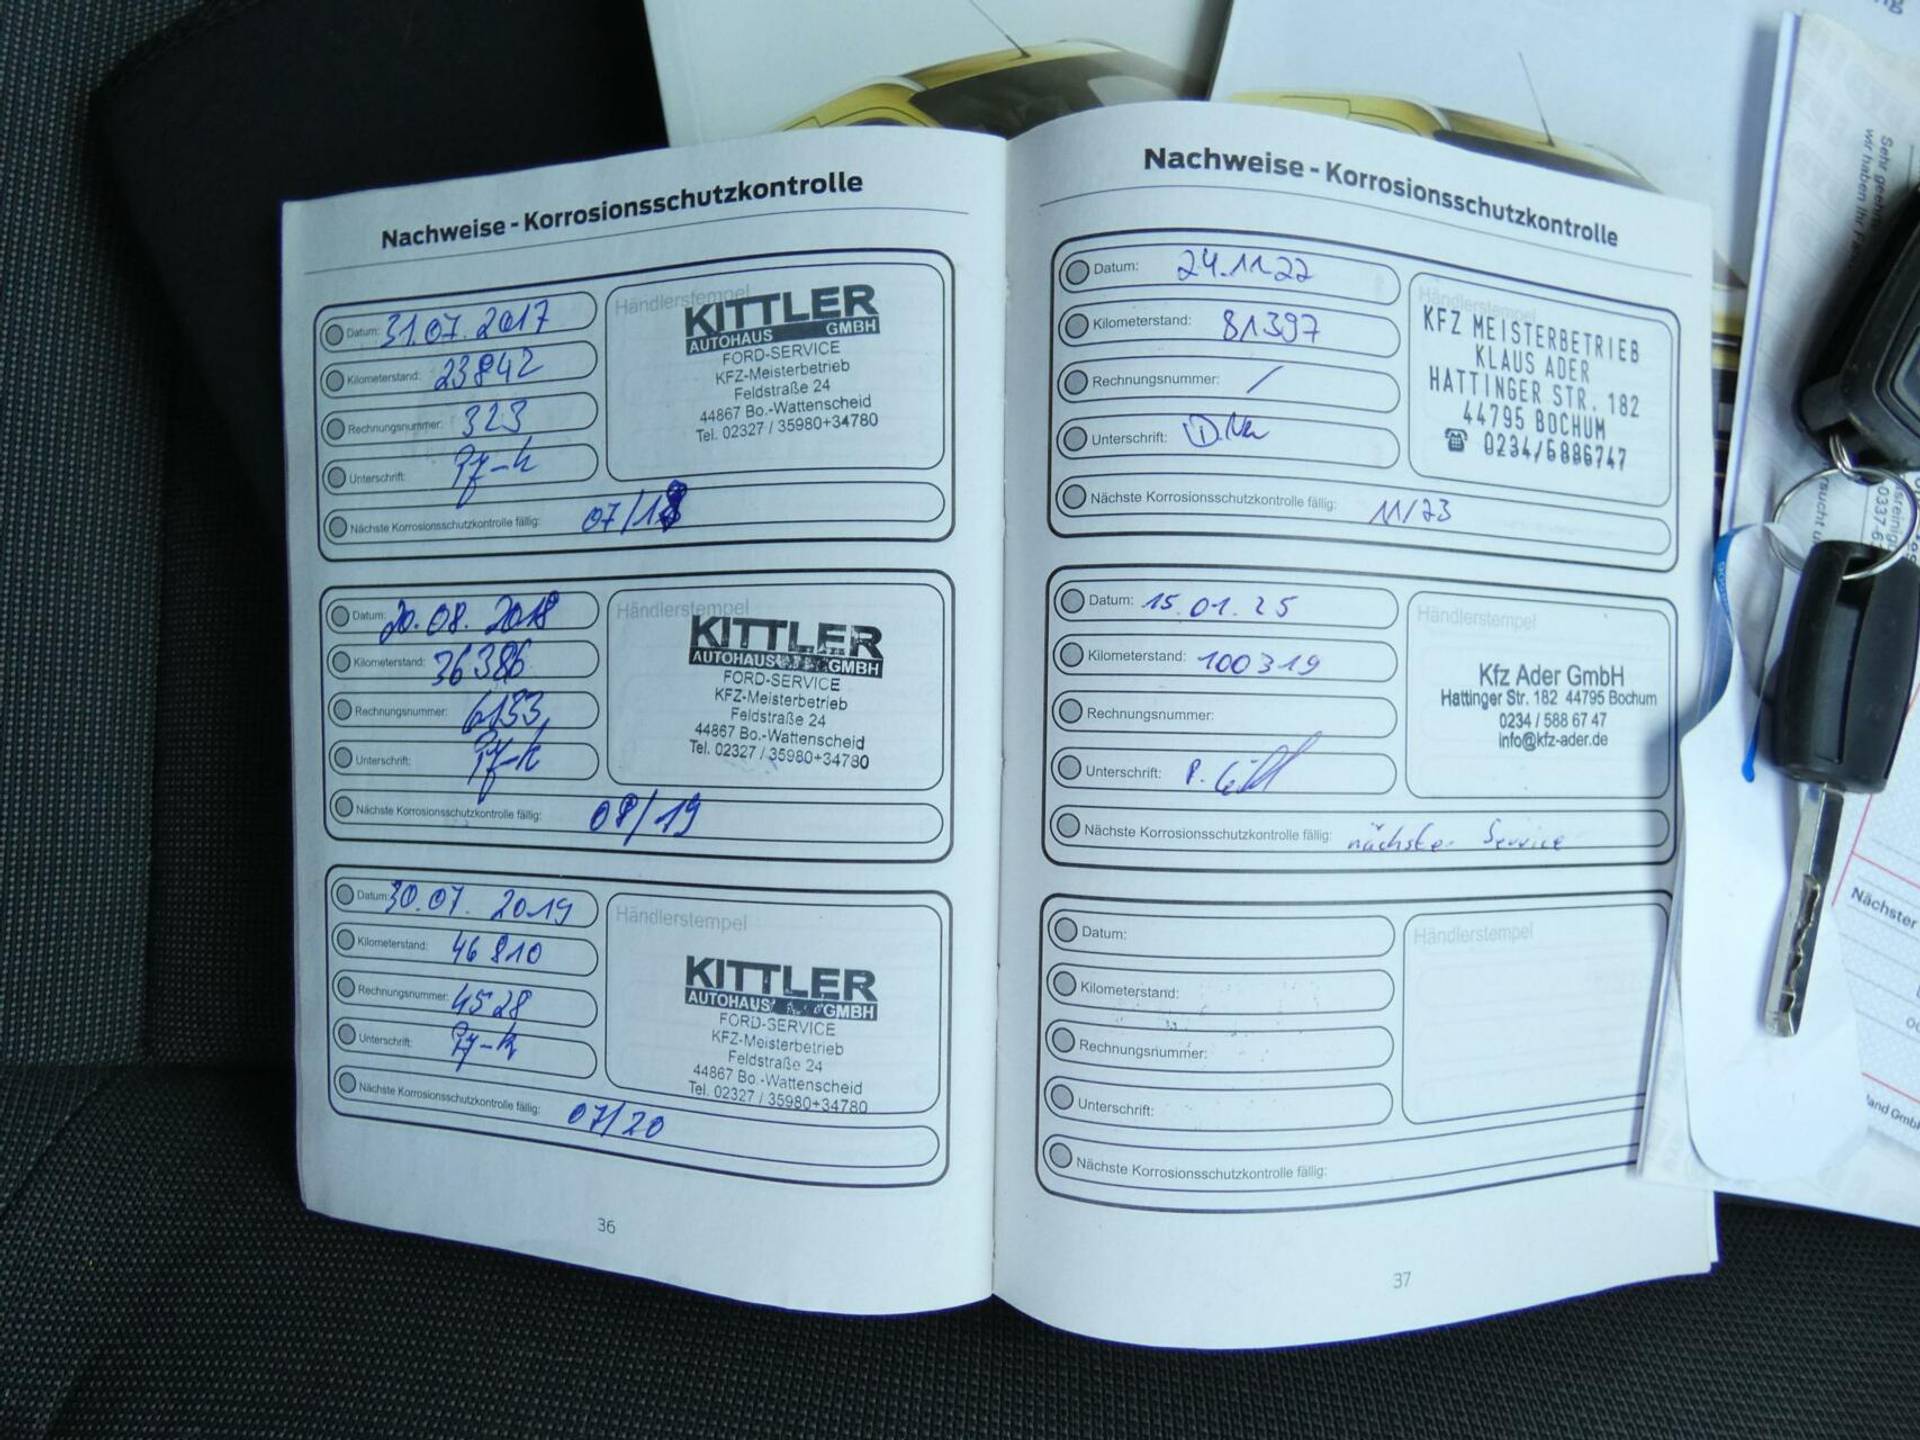 Nachweise - Korrosionsschutzkontrolle
Datum: 31.07.2017
Kilometerstand: 23842
Rechnungsnummer: 323
Unterschrift:
Nächste Korrosionsschutzkontrolle fällig: 07/18
Händlerstempel
KITTLER
AUTOHAUS GMBH
FORD-SERVICE
KFZ-Meisterbetrieb
Feldstraße 24
44867 Bo.-Wattenscheid
Tel. 02327 / 35980+34780
Datum: 20.08.2018
Kilometerstand: 36386
Rechnungsnummer: 6133
Unterschrift:
Nächste Korrosionsschutzkontrolle fällig: 08/19
Händlerstempel
KITTLER
AUTOHAUS GMBH
FORD-SERVICE
KFZ-Meisterbetrieb
Feldstraße 24
44867 Bo.-Wattenscheid
Tel. 02327 / 35980+34780
Datum: 30.07.2019
Kilometerstand: 46810
Rechnungsnummer: 4528
Unterschrift:
Nächste Korrosionsschutzkontrolle fällig: 07/20
Händlerstempel
KITTLER
AUTOHAUS GMBH
FORD-SERVICE
KFZ-Meisterbetrieb
Feldstraße 24
44867 Bo.-Wattenscheid
Tel. 02327 / 35980+34780
36
Nachweise - Korrosionsschutzkontrolle
Datum: 24.11.22
Kilometerstand: 81397
Rechnungsnummer: /
Unterschrift:
Nächste Korrosionsschutzkontrolle fällig: 11/23
Händlerstempel
KFZ MEISTERBETRIEB
KLAUS ADER
HATTINGER STR. 182
44795 BOCHUM
☎ 0234/5886747
Datum: 15.01.25
Kilometerstand: 100319
Rechnungsnummer:
Unterschrift:
Nächste Korrosionsschutzkontrolle fällig: nächster Service
Händlerstempel
Kfz Ader GmbH
Hattinger Str. 182 44795 Bochum
0234 / 588 67 47
info@kfz-ader.de
Datum:
Kilometerstand:
Rechnungsnummer:
Unterschrift:
Nächste Korrosionsschutzkontrolle fällig:
Händlerstempel
37
Nächster